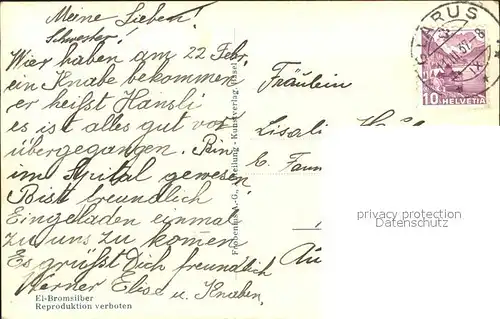 Meine Lieben!
Schwester!
Wier haben am 22 Febr,
ein Knabe bekommen
er heifst Hansli
es ist alles gut vor
übergegangen. Bin
im Spital gewesen
Bist freundlich
Eingeladen einmal
zu uns zu komen
Es grüsst Dich freundlich
Werner Elise u. Knaben,
El-Bromsilber
Reproduktion verboten
Frobenius A.-G., Abteilung - Kunstverlag, Basel
Fräulein
Lisali
b. Faun
Au
GLARUS
10 HELVETIA
privacy protection
Datenschutz